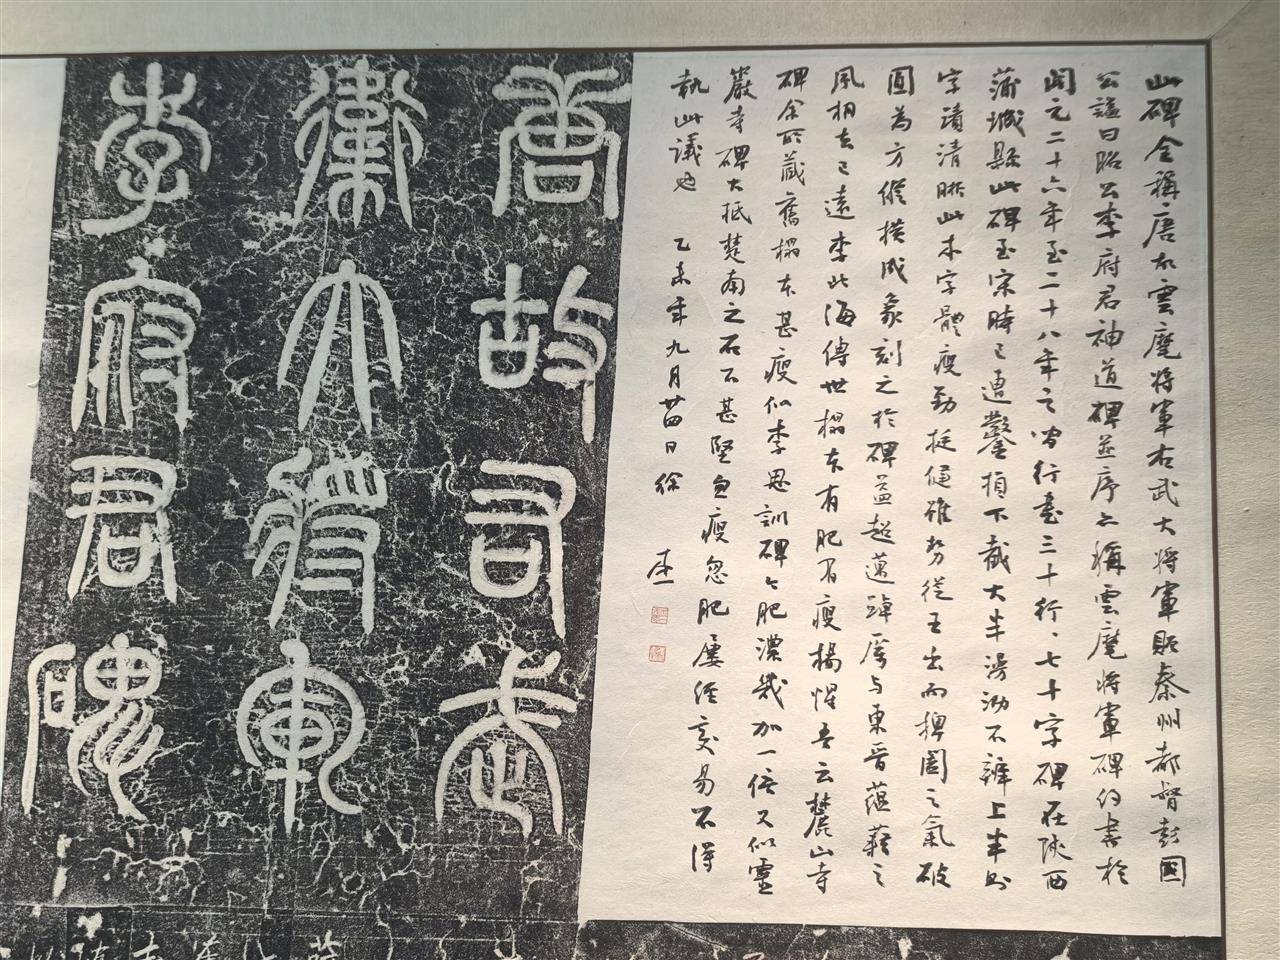 此碑全稱唐故雲麾將軍右武大將軍贈秦州都督彭國
公諡曰昭公李府君神道碑並序亦稱雲麾將軍碑約書於
開元二十六年至二十八年之間行書三十行、七十字碑在陝西
蒲城縣此碑至宋時已遭鑿損下截大半漫泐不辨上半則
字蹟清晰此本字體瘦勁挺健雖努從王出而捭闔之氣破
圓為方縱橫成象刻之於碑益超邁踔厲与東晉蘊藉之
風相去已遠李北海傳世榻本有肥有瘦楊惺吾云麓山寺
碑余所藏舊榻本甚瘦似李思訓碑今肥濃幾加一倍又似靈
巖寺碑大抵楚南之石不甚堅忽瘦忽肥屢經交易不得
執此議也 乙未年九月廿四日徐
唐故右武
衛大將軍
李府君碑